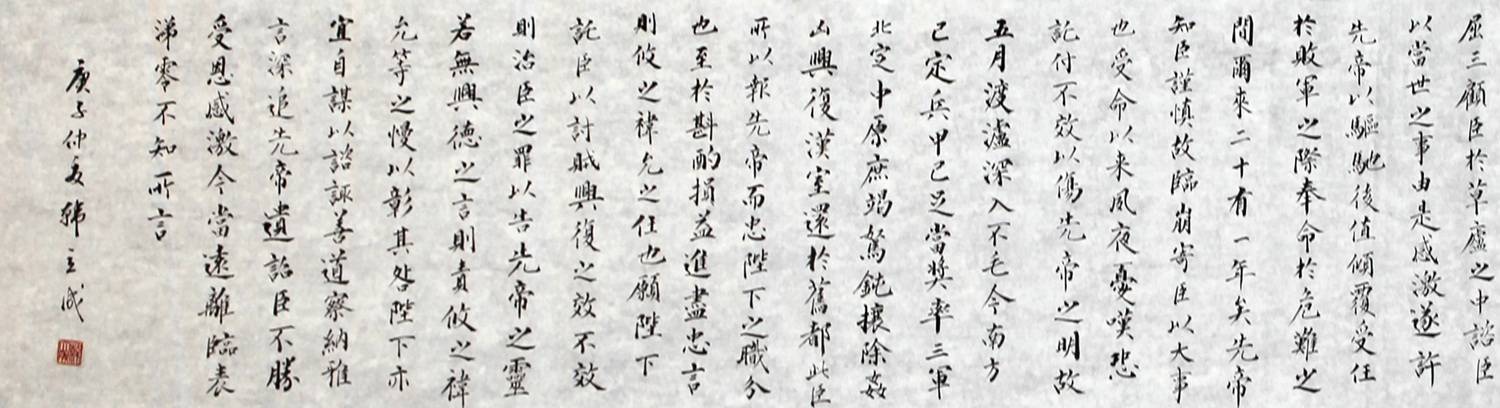 屈三顧臣於草廬之中諮臣
以當世之事由是感激遂許
先帝以驅馳後值傾覆受任
於敗軍之際奉命於危難之
間爾來二十有一年矣先帝
知臣謹慎故臨崩寄臣以大事
也受命以来夙夜憂嘆恐
託付不效以傷先帝之明故
五月渡瀘深入不毛今南方
已定兵甲已足當獎率三軍
北定中原庶竭駑鈍攘除姦
凶興復漢室還於舊都此臣
所以報先帝而忠陛下之職分
也至於斟酌損益進盡忠言
則攸之禕允之任也願陛下
託臣以討賊興復之效不效
則治臣之罪以告先帝之靈
若無興德之言則責攸之禕
允等之慢以彰其咎陛下亦
宜自謀以諮諏善道察納雅
言深追先帝遺詔臣不勝
受恩感激今當遠離臨表
涕零不知所言
庚子仲夏韩立成